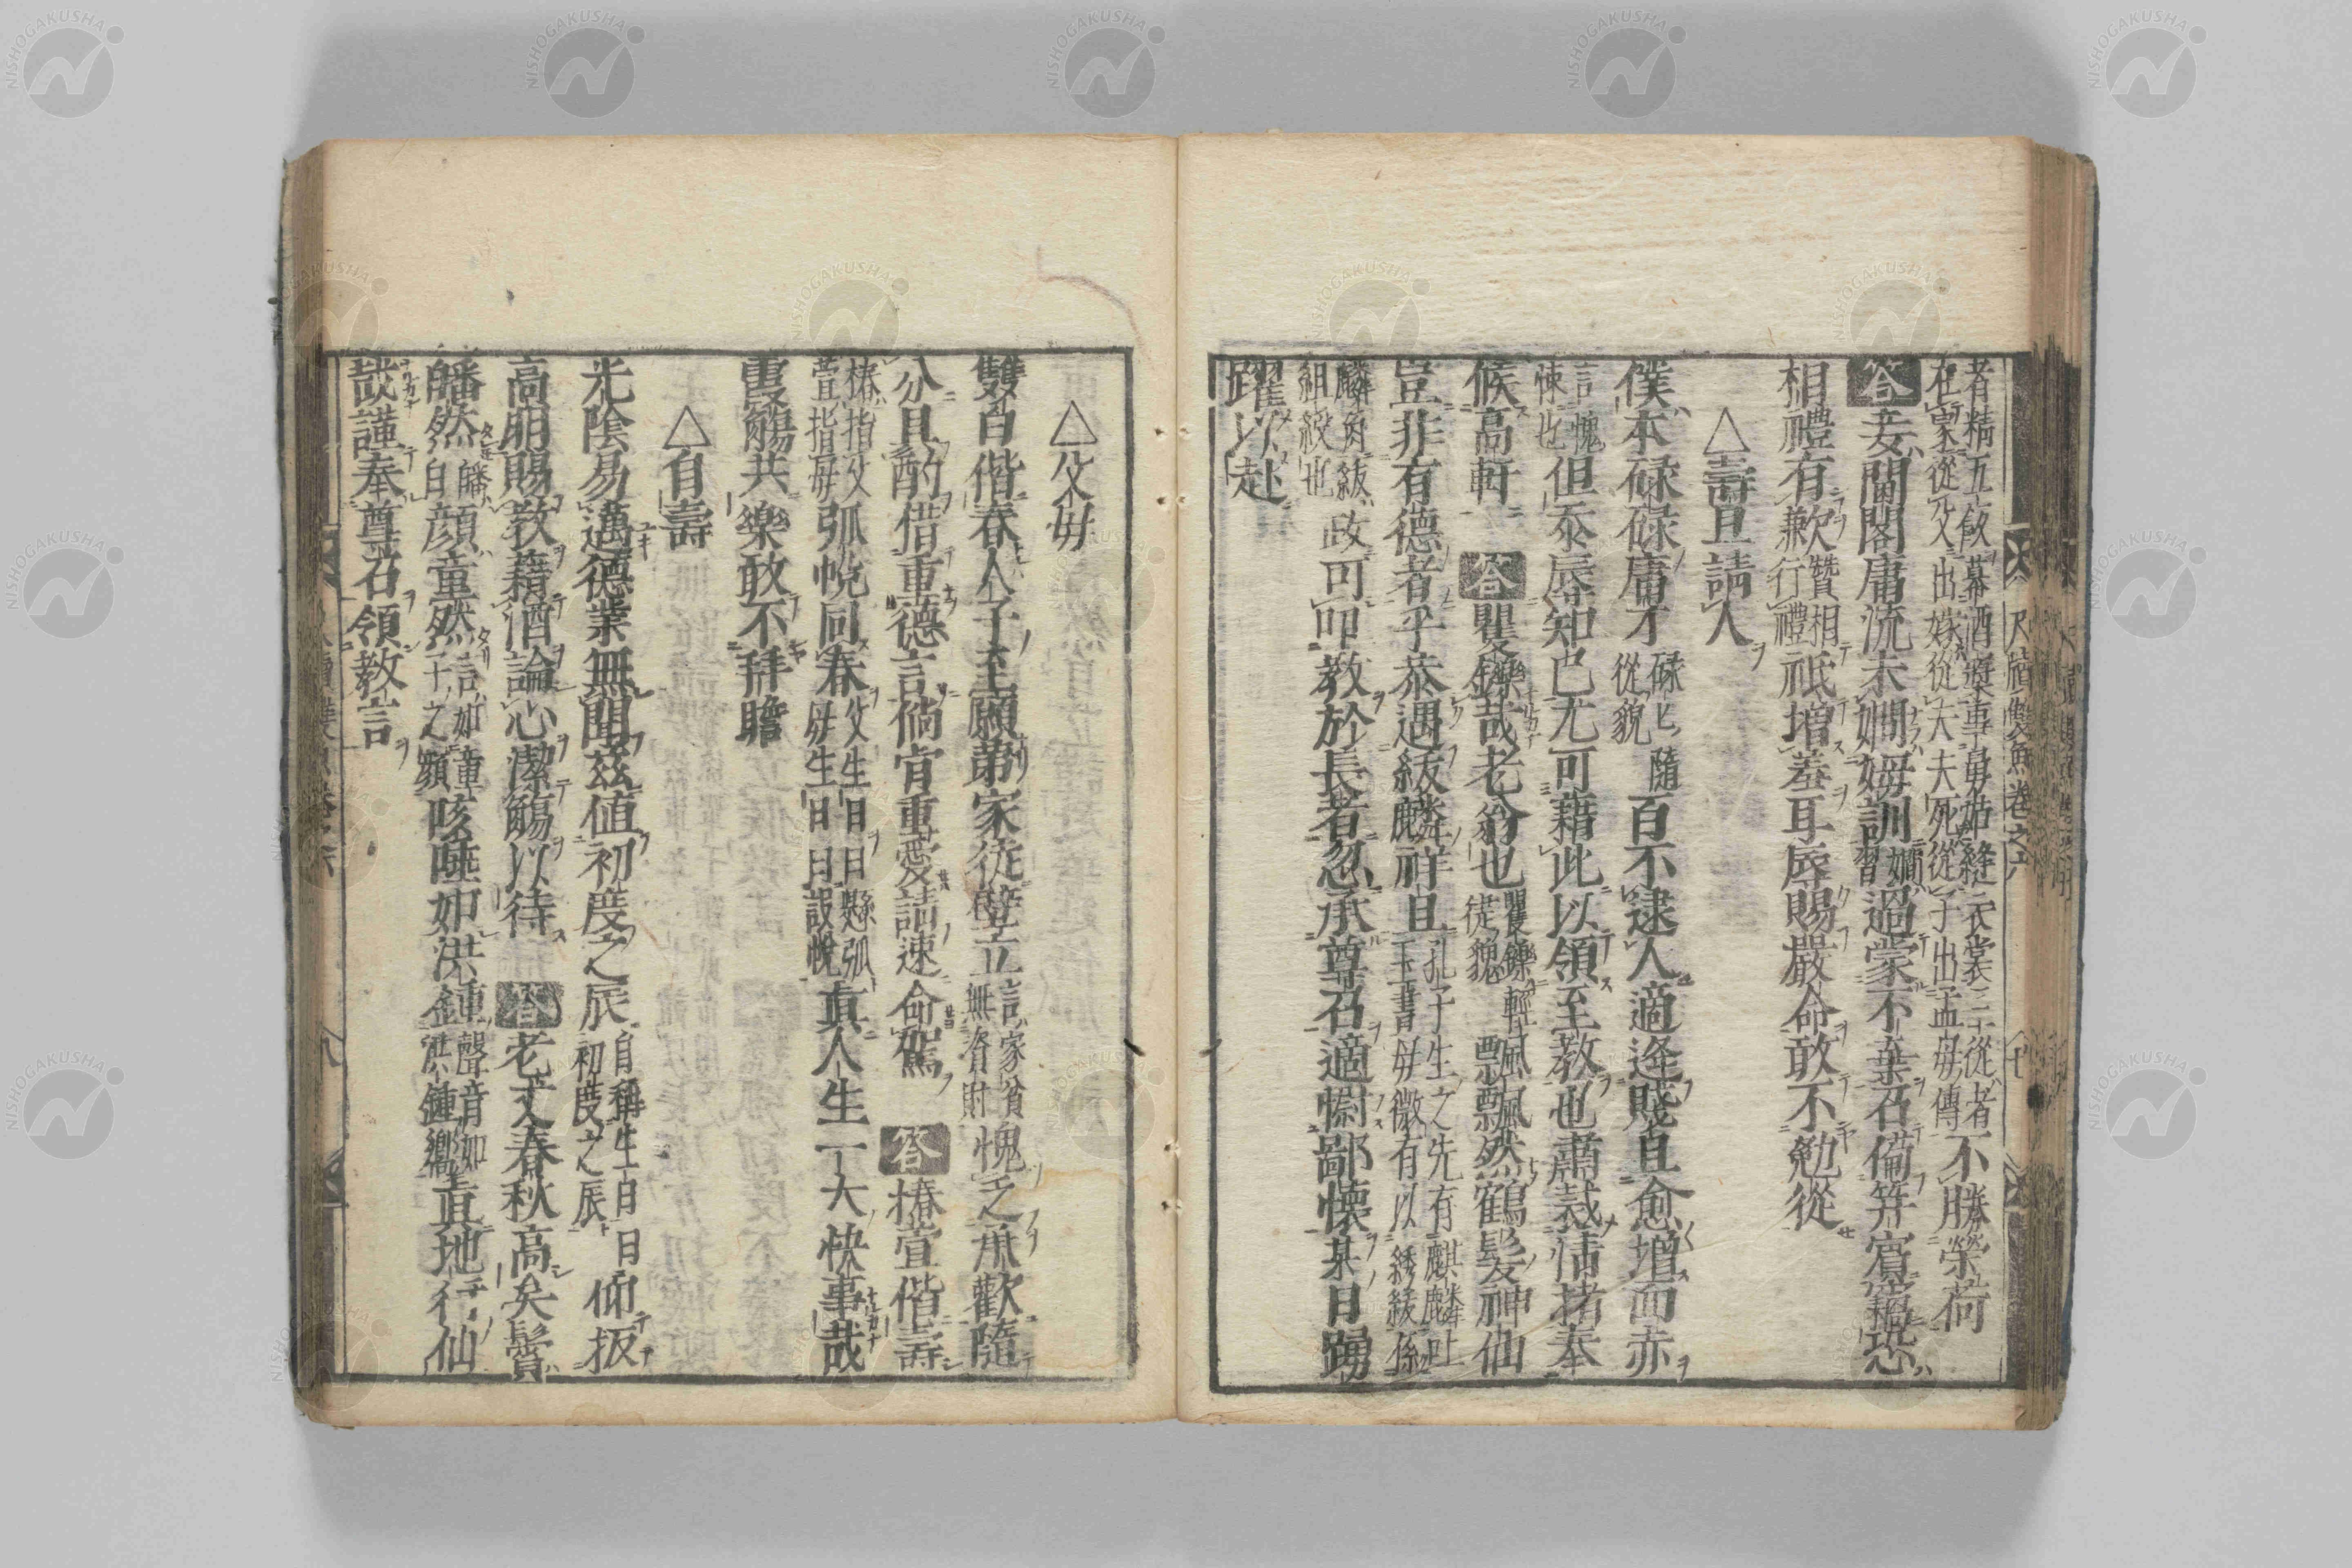 尺牘雙魚卷之六
者精五飯冪酒漿事舅姑縫衣裳三從者
在家從父出嫁從夫夫死從子出孟母傳
不勝榮荷
答妾閨閣庸流未嫺姆訓嫺習過蒙不棄召備筓賓竊恐
相禮有歉贊相行禮祇增羞耳辱賜嚴命敢不勉從
△壽旦請人
僕本碌碌庸才碌匕隨從貌百不逮人適逢賤旦愈增面赤
言愧悚也但忝辱知已尤可藉此以領至教也肅裁情楮奉
候高軒 答矍鑠哉老翁也矍鑠輕徤貌飄飄然鶴髮神仙
豈非有德者乎恭遇紱麟祥旦孔子生之先有麒麟吐玉書母徵有以綉紱係
麟角紱組綬也政可叩教於長者忽承尊召適慰鄙懷某日踴
躍以赴
△父母
雙百偕春人子至願第家徒壁立言家貧無資財愧乏承歡隨
分具酌借重德言倘肯重愛請速命駕 答椿萱偕壽
椿指父萱指母弧帨同春父生日曰懸弧母生日曰設帨真人生一大快事哉
霞觴共樂敢不拜瞻
△自壽
光陰易邁德業無聞茲值初度之辰自稱生日曰初度之辰仰扳
高朋賜教藉酒論心潔觴以待 答老丈春秋高矣鬢
皤然皤白顏童然言如童子之顏咳唾如洪鍾聲音如洪鍾響真地行仙
哉謹奉尊召領教言